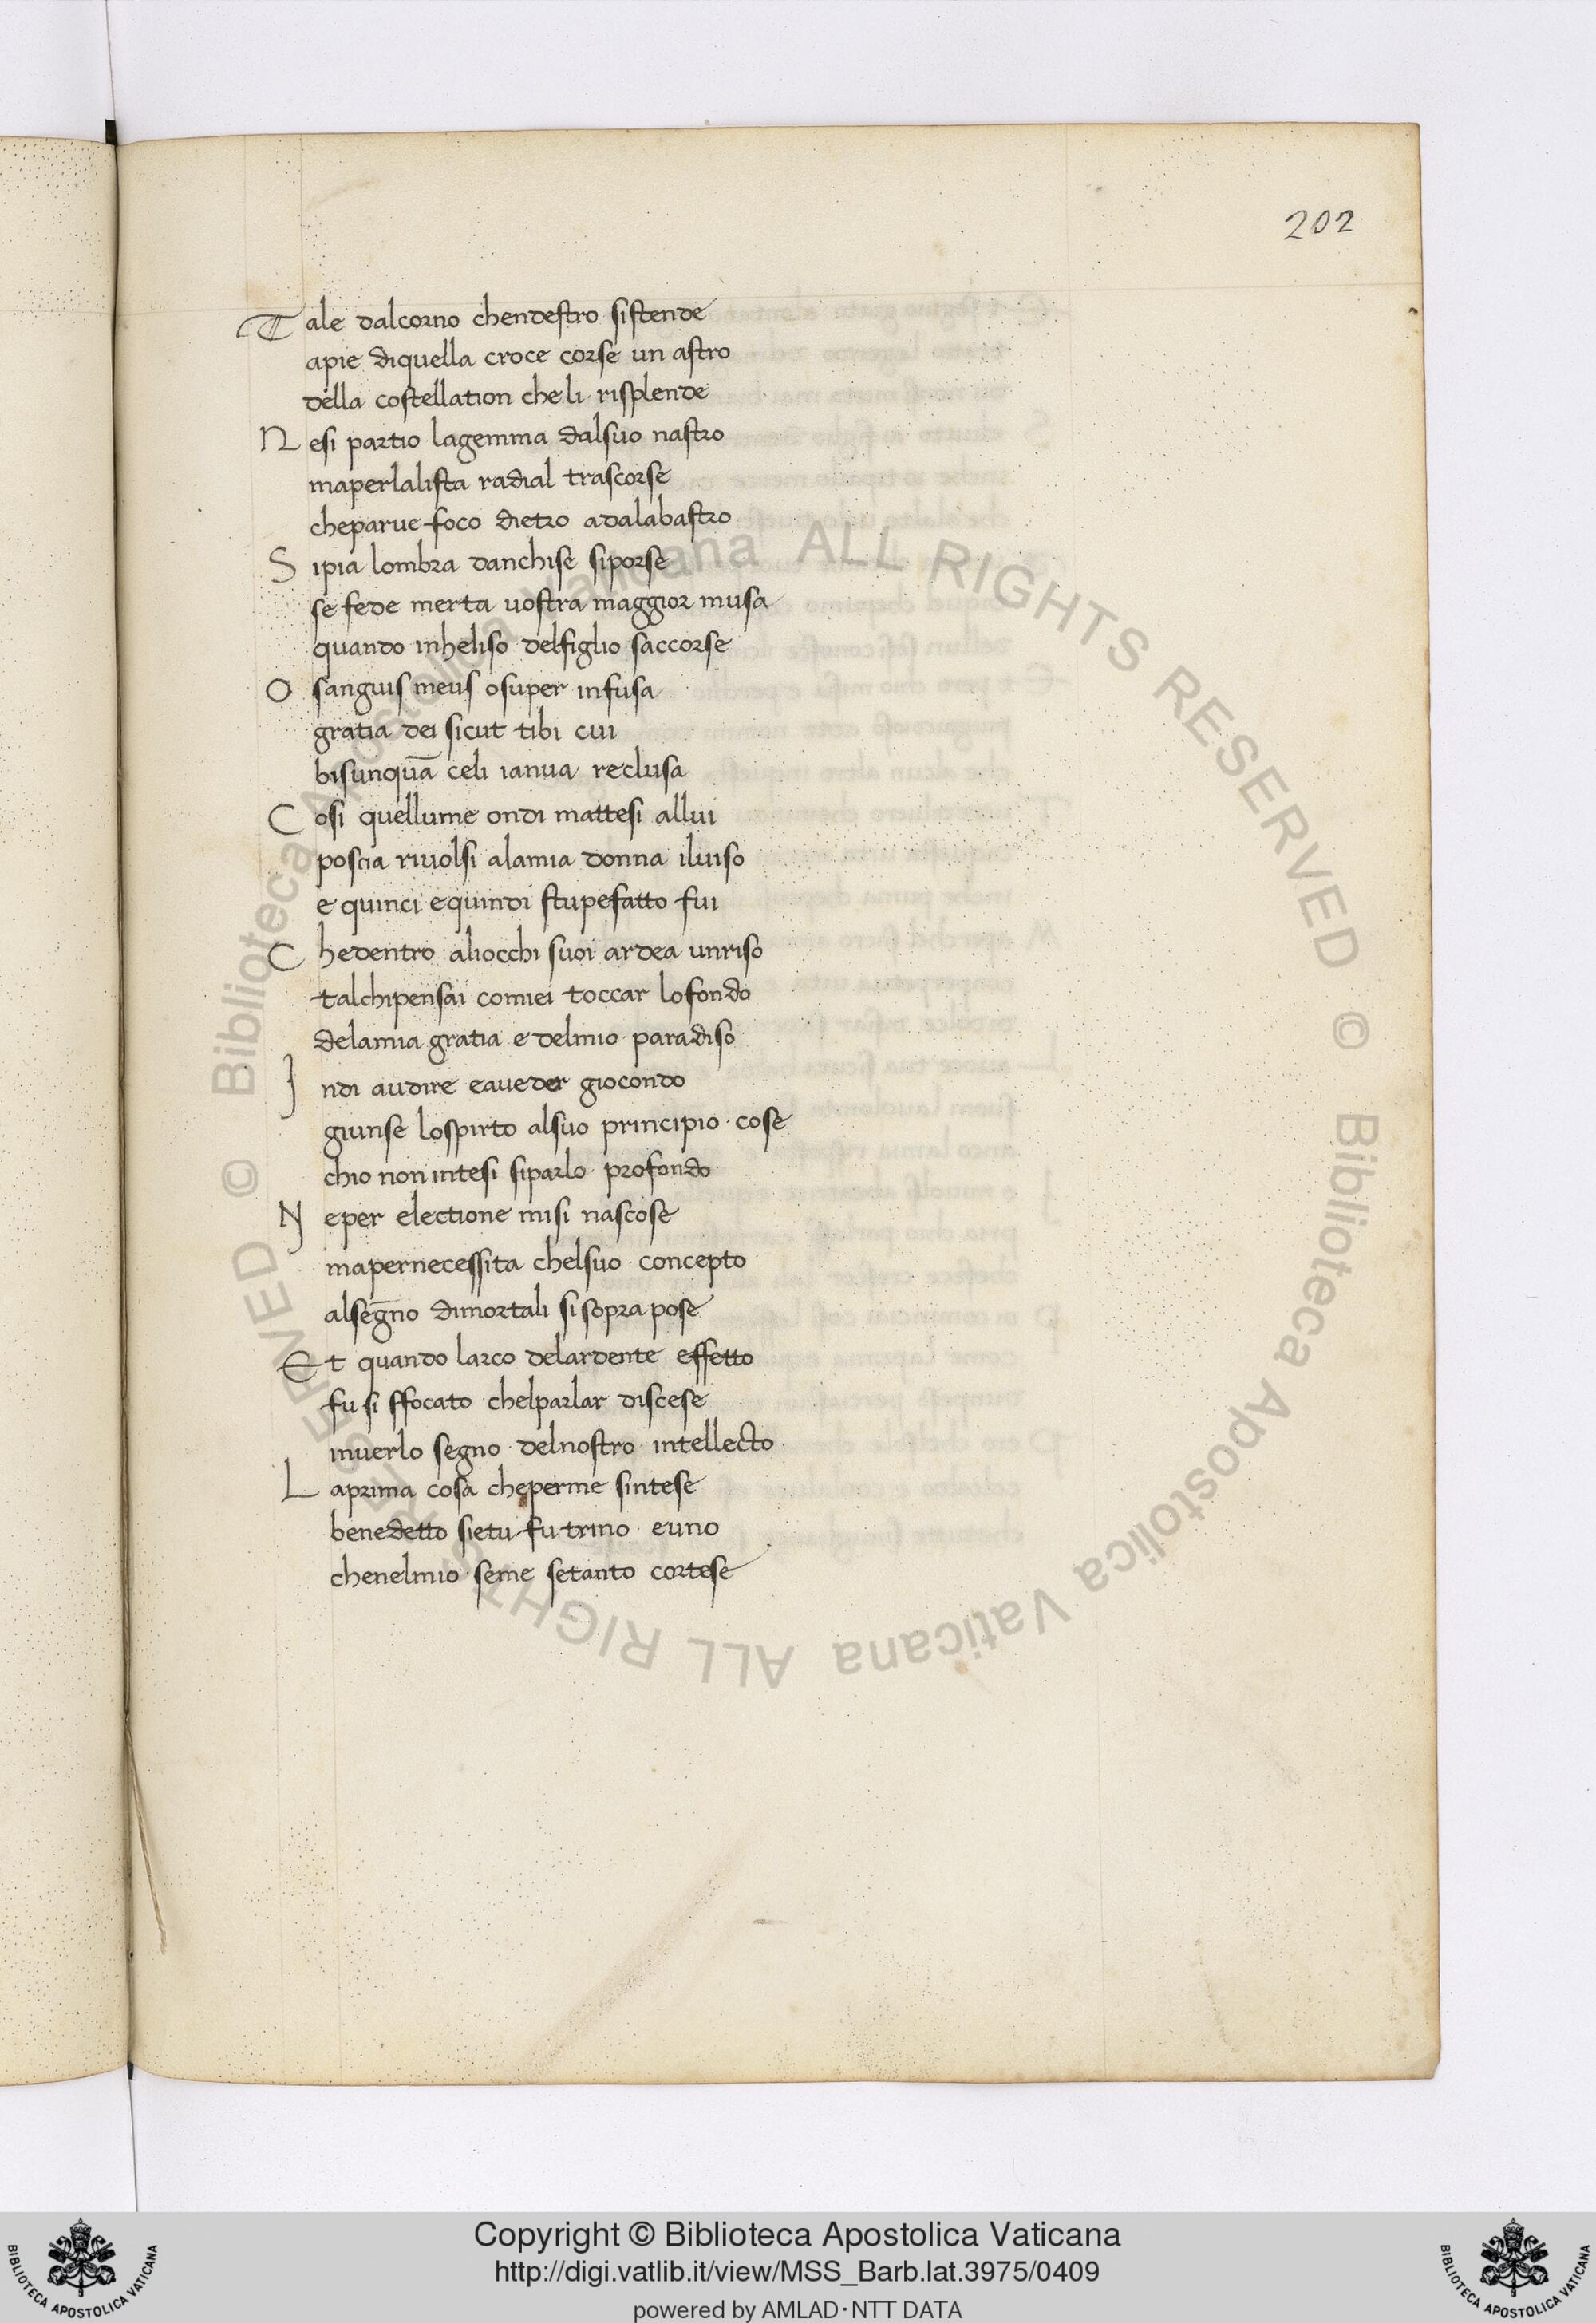 202
Tale dalcorno chendestro sistende
apie diquella croce corse un astro
della costellation che li risplende
Nesi partio lagemma dalsuo nastro
maperlalista radial trascorse
cheparue foco dietro adalabastro
Sipia lombra danchise siporse
se fede merta uostra maggior musa
quando inheliso delfiglio saccorse
O sanguis meus osuper infusa
gratia dei sicut tibi cui
bisunquā celi ianua reclusa
Cosi quellume ondi mattesi allui
poscia riuolsi alamia donna iluiso
e quinci equindi stupefatto fui
Chedentro aliocchi suoi ardea unriso
talchipensai comiei toccar lofondo
delamia gratia e delmio paradiso
Indi audire eaueder giocondo
giunse lospirto alsuo principio cose
chio non intesi siparlo profondo
Neper electione misi nascose
mapernecessita chelsuo concepto
alsegn̄o dimortali si sopra pose
Et quando larco delardente effetto
fu si ffocato chelparlar discese
inuerlo segno delnostro intellecto
Laprima cosa cheperme sintese
benedetto sietu fu trino euno
chenelmio seme setanto cortese
© Biblioteca Apostolica Vaticana ALL RIGHTS RESERVED © Biblioteca Apostolica Vaticana ALL RIGHTS RESERVED
Copyright © Biblioteca Apostolica Vaticana
http://digi.vatlib.it/view/MSS_Barb.lat.3975/0409
powered by AMLAD·NTT DATA
BIBLIOTECA APOSTOLICA VATICANA
BIBLIOTECA APOSTOLICA VATICANA